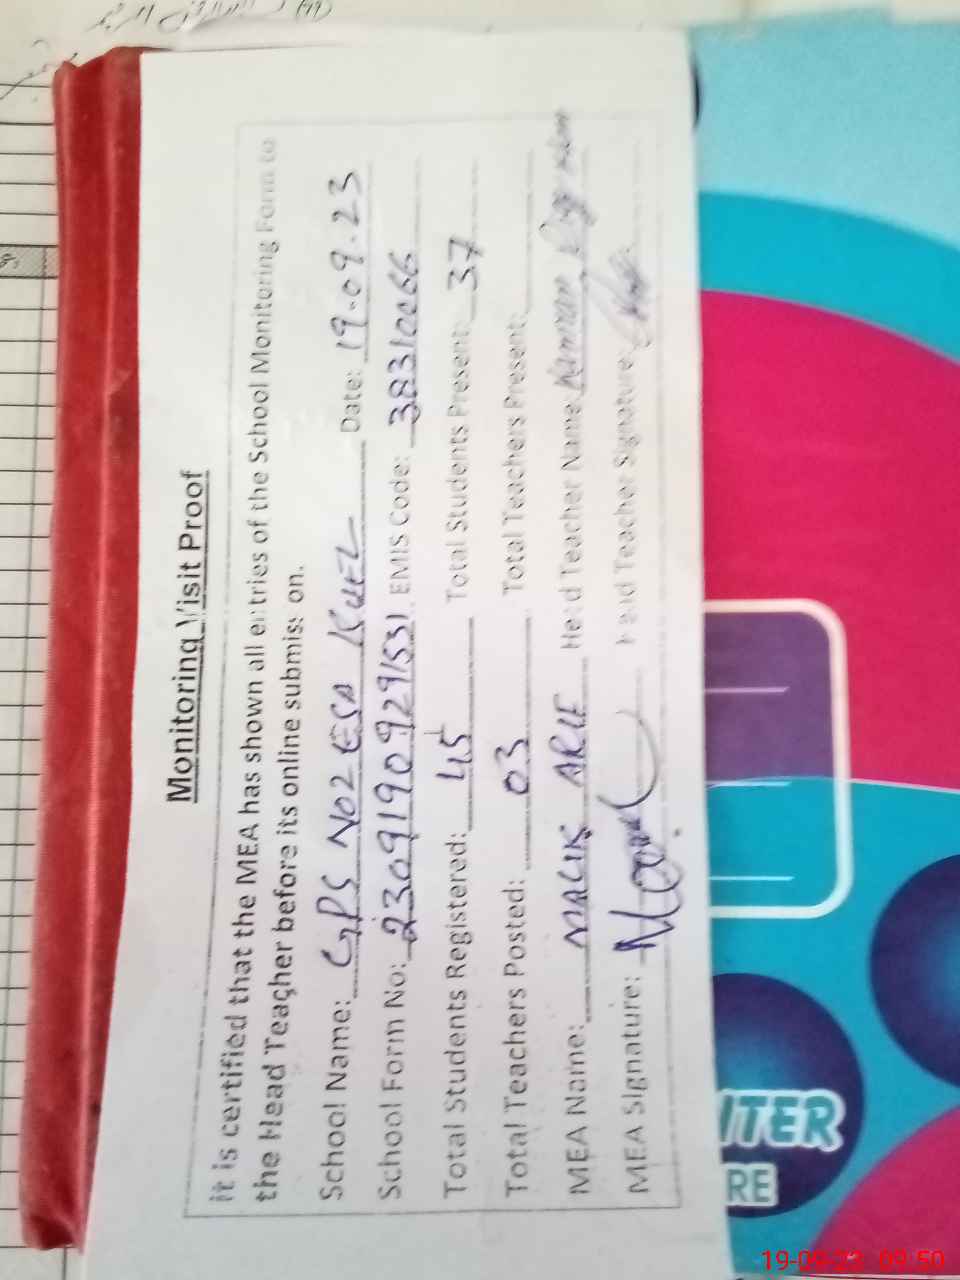 Monitoring Visit Proof
It is certified that the MEA has shown all entries of the School Monitoring Form to
the Head Teacher before its online submission.
School Name: GPS NO2 ESA KHEL Date: 19.09.23
School Form No: 23091909291531 EMIS Code: 38310066
Total Students Registered: 45 Total Students Present: 37
Total Teachers Posted: 03 Total Teachers Present:
MEA Name: MALIK ARIF Head Teacher Name: Kamran
MEA Signature: Head Teacher Signature:
NTER
RE
19-09-23 09:50